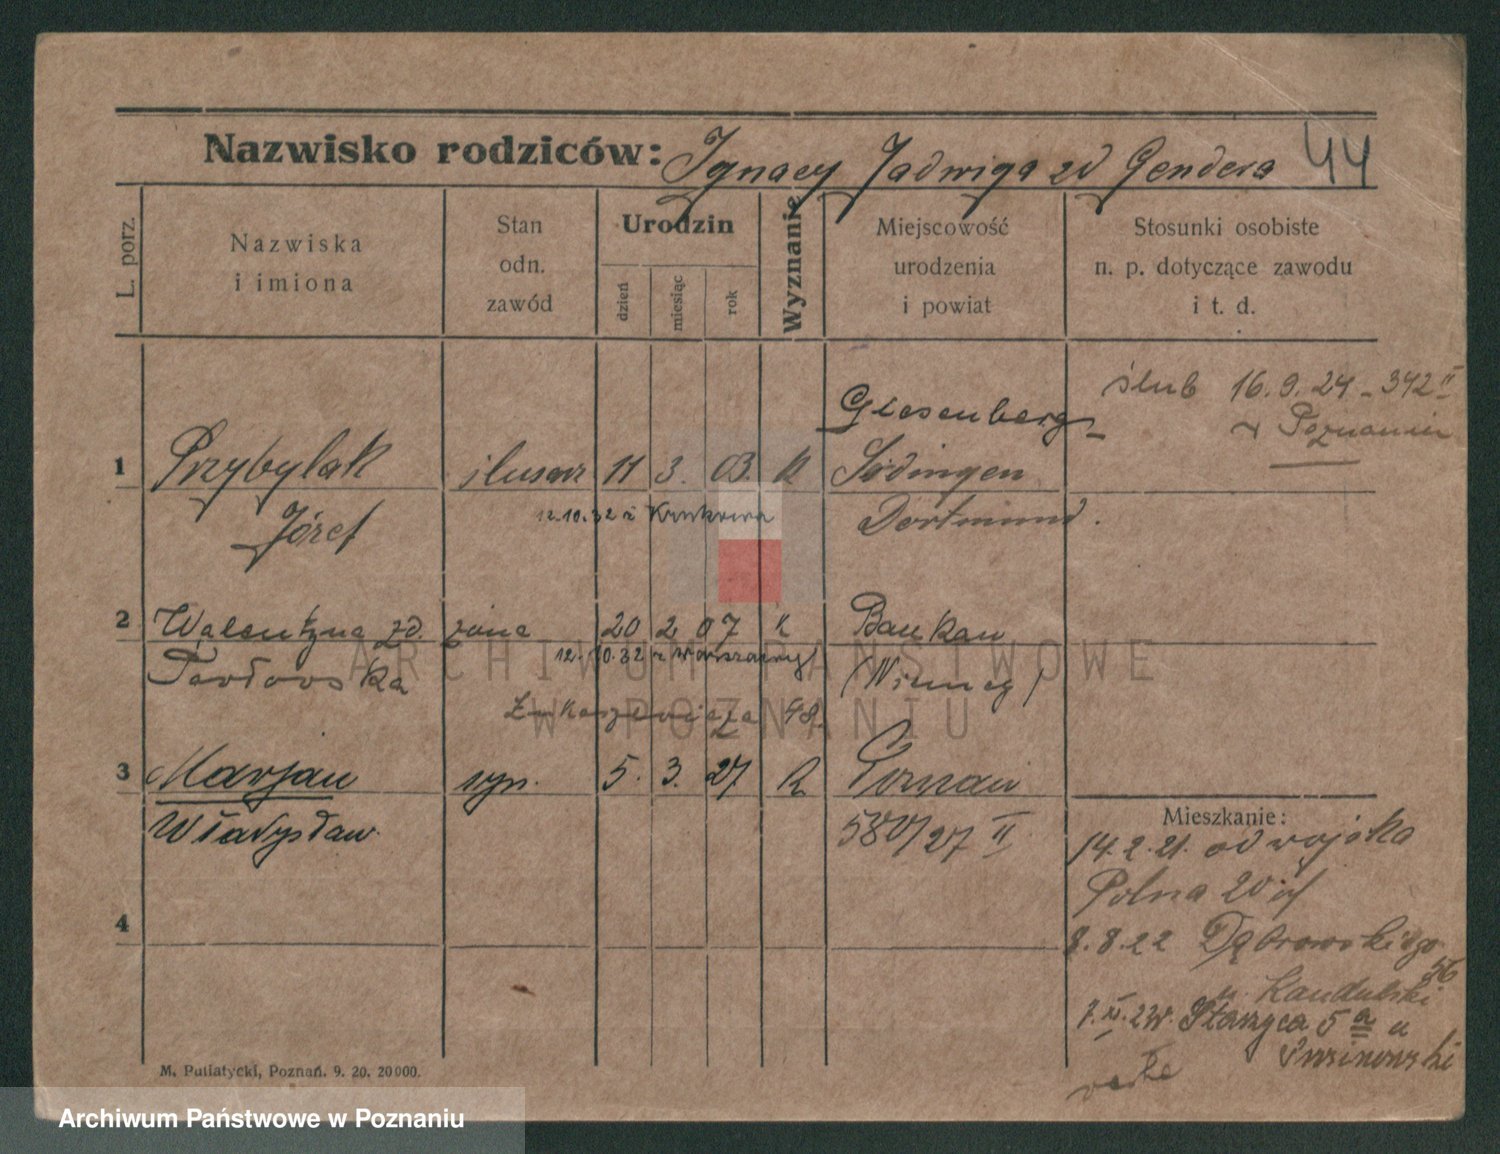 Nazwisko rodziców: Ignacy Jadwiga zd Gendera 44
L. porz.
Nazwiska
i imiona
Stan
odn.
zawód
Urodzin
dzień
miesiąc
rok
Wyznanie
Miejscowość
urodzenia
i powiat
Stosunki osobiste
n. p. dotyczące zawodu
i t. d.
ślub 16.9.24 - 342 II
w Poznaniu
Giesenberg-
1 Przybylak ślusarz 11 3. 03. K Södingen
Józef 12.10.32 z Krukowa Dortmund.
2 Walentyna zd. żona 20 2 07 K Baukau
Teodorska 12.10.32 z (Niemcy)
48.
3 Marjan syn. 5. 3. 27 K Poznań
Władysław 580/27 II
Mieszkanie:
14.2.21. od wojska
Polna 20
8.8.22 Dąbrowskiego
56
u Kandulski
Staszyca 5 a u
4
M. Putiatycki, Poznań. 9. 20. 20000.
ARCHIWUM PAŃSTWOWE
W POZNANIU
Archiwum Państwowe w Poznaniu